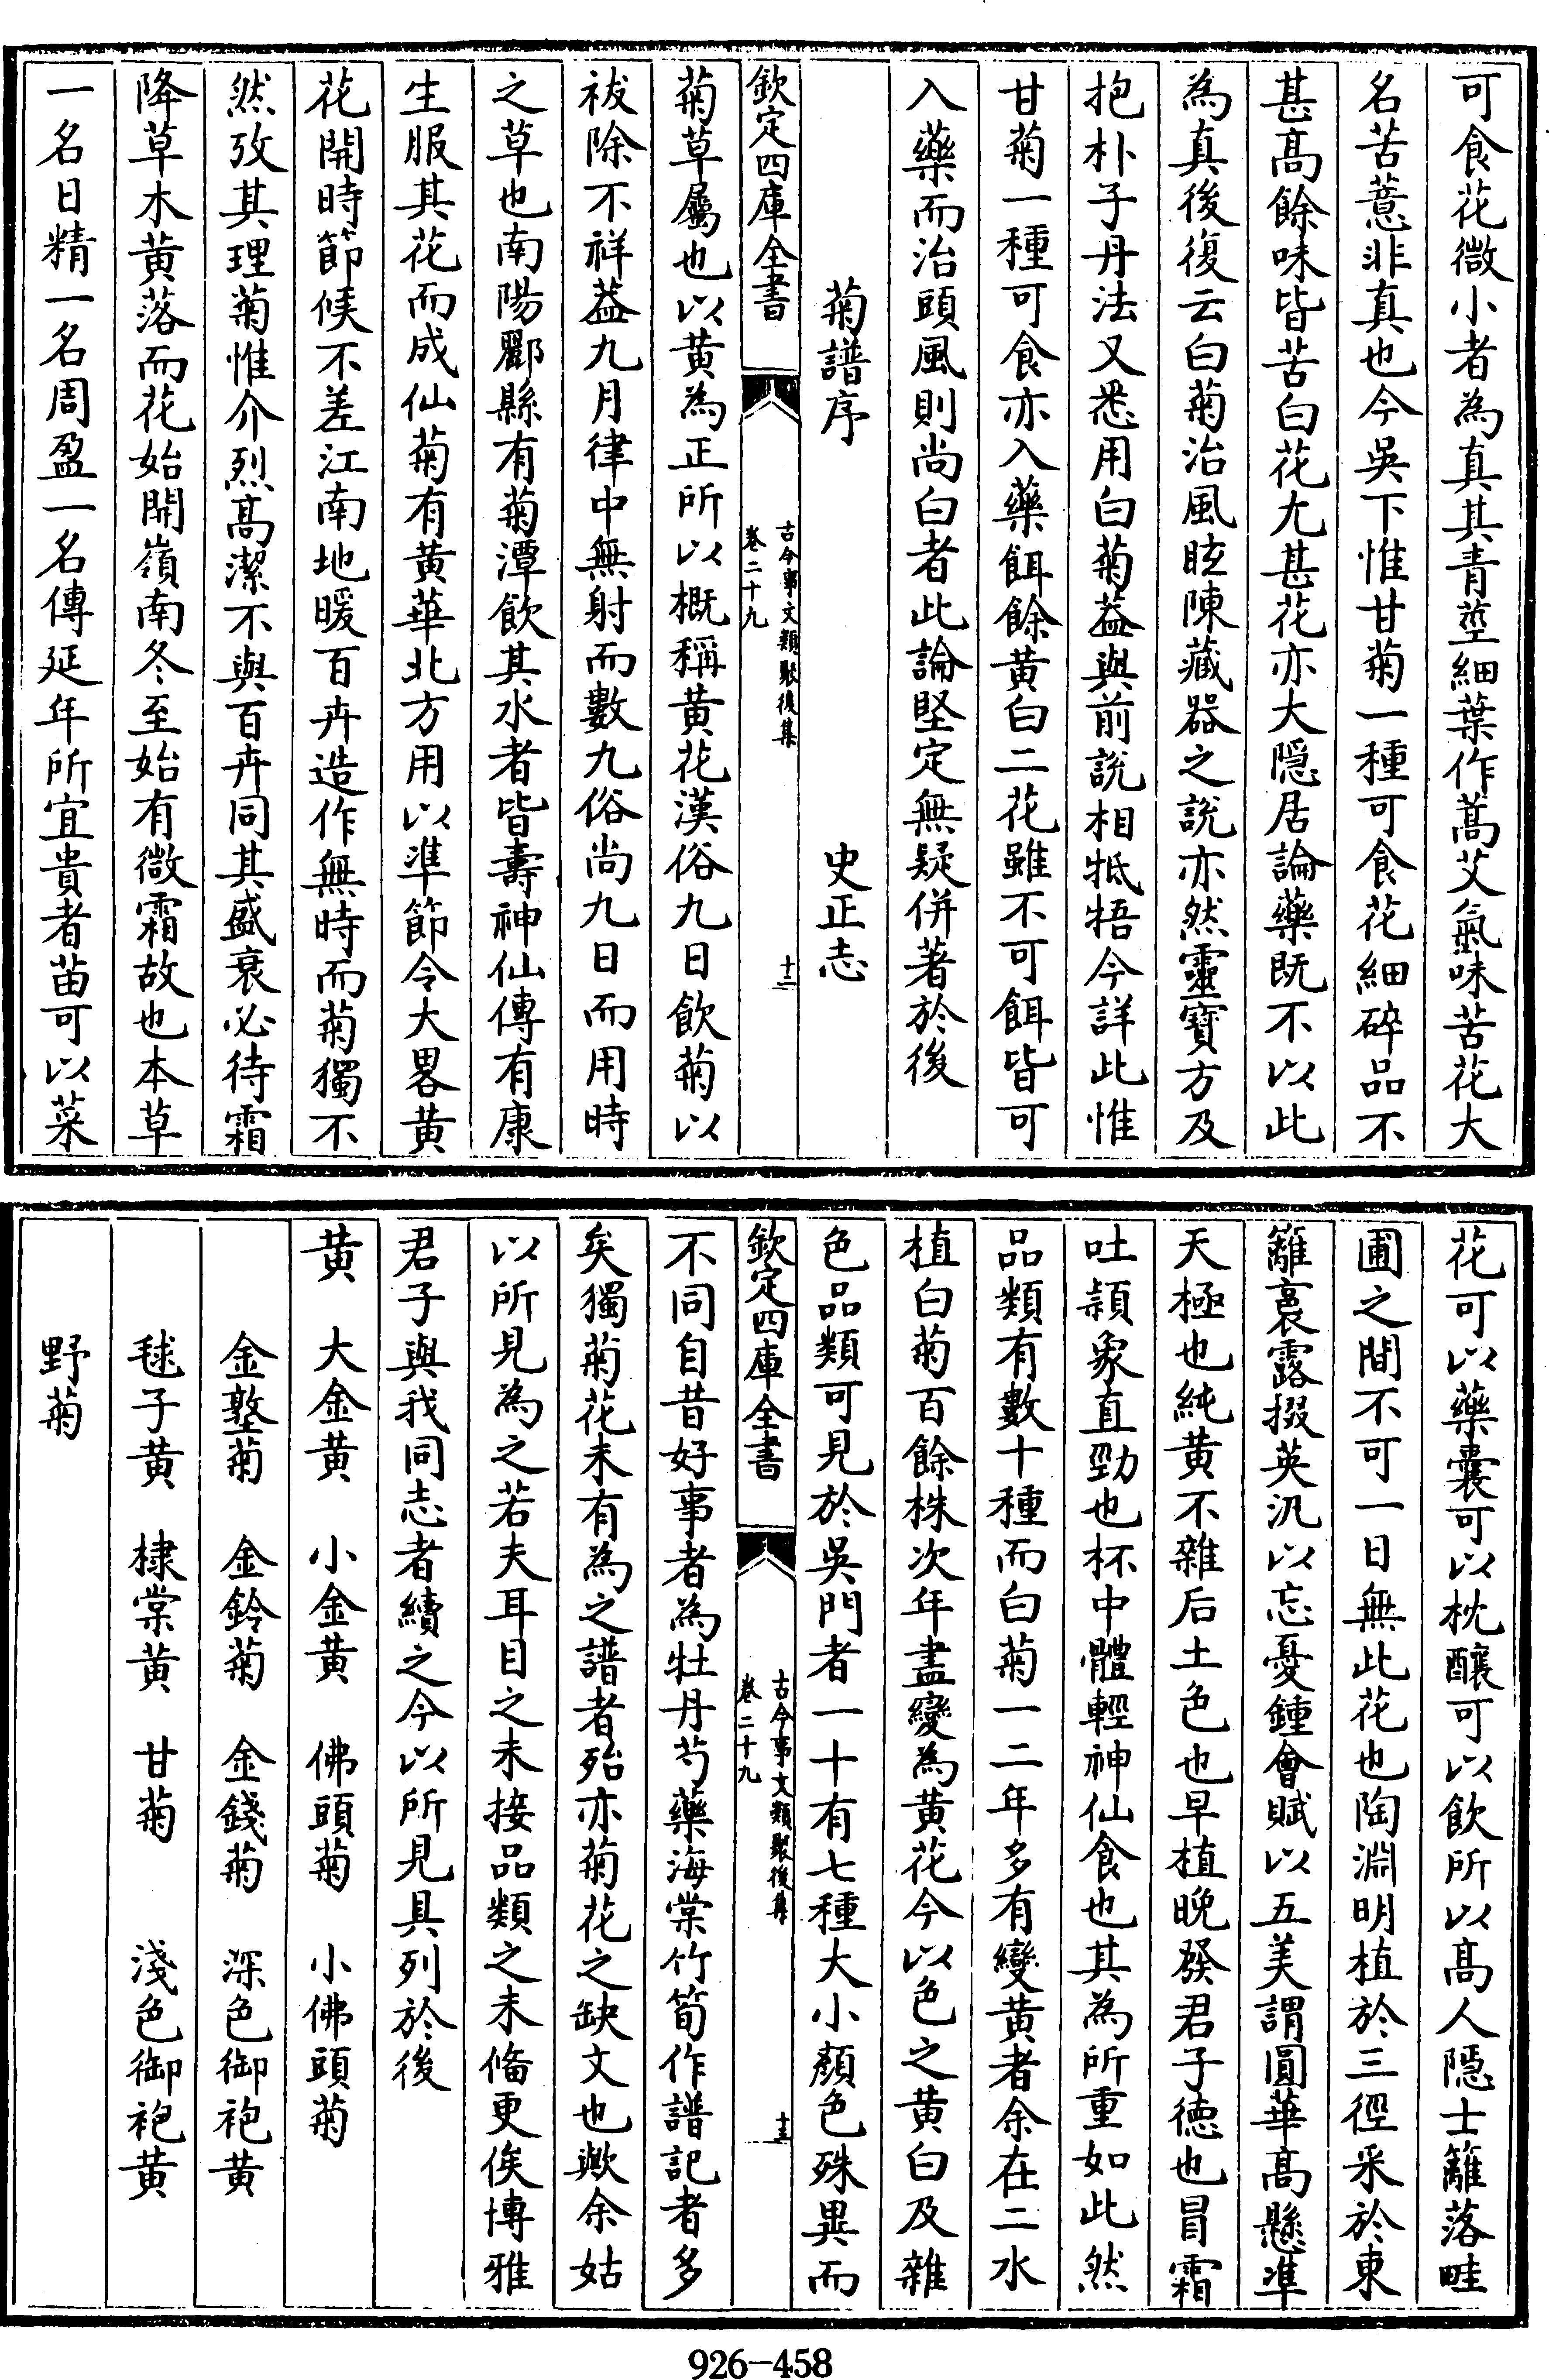 可食花微小者為真其青莖細葉作蒿艾氣味苦花大
名苦薏非真也今吳下惟甘菊一種可食花細碎品不
甚高餘味皆苦白花尤甚花亦大隱居論藥既不以此
為真後復云白菊治風眩陳藏器之說亦然靈寶方及
抱朴子丹法又悉用白菊葢與前說相牴牾今詳此惟
甘菊一種可食亦入藥餌餘黃白二花雖不可餌皆可
入藥而治頭風則尚白者此論堅定無疑併著於後
菊譜序 史正志
欽定四庫全書
古今事文類聚後集
卷二十九
十二
菊草屬也以黃為正所以概稱黃花漢俗九日飲菊以
祓除不祥葢九月律中無射而數九俗尚九日而用時
之草也南陽酈縣有菊潭飲其水者皆壽神仙傳有康
生服其花而成仙菊有黃華北方用以準節令大畧黃
花開時節候不差江南地暖百卉造作無時而菊獨不
然攷其理菊惟介烈高潔不與百卉同其盛衰必待霜
降草木黃落而花始開嶺南冬至始有微霜故也本草
一名日精一名周盈一名傅延年所宜貴者苗可以菜
花可以藥囊可以枕釀可以飲所以高人隱士籬落畦
圃之間不可一日無此花也陶淵明植於三徑采於東
籬裛露掇英汎以忘憂鍾會賦以五美謂圓華高懸準
天極也純黃不雜后土色也早植晚發君子德也冒霜
吐頴象直勁也杯中體輕神仙食也其為所重如此然
品類有數十種而白菊一二年多有變黃者余在二水
植白菊百餘株次年盡變為黃花今以色之黃白及雜
色品類可見於吳門者一十有七種大小顏色殊異而
欽定四庫全書
古今事文類聚後集
卷二十九
十三
不同自昔好事者為牡丹芍藥海棠竹筍作譜記者多
矣獨菊花未有為之譜者殆亦菊花之缺文也歟余姑
以所見為之若夫耳目之未接品類之未備更俟博雅
君子與我同志者續之今以所見具列於後
黃 大金黃 小金黃 佛頭菊 小佛頭菊
金墪菊 金鈴菊 金錢菊 深色御袍黃
毬子黃 棣棠黃 甘菊 淺色御袍黃
野菊
926-458